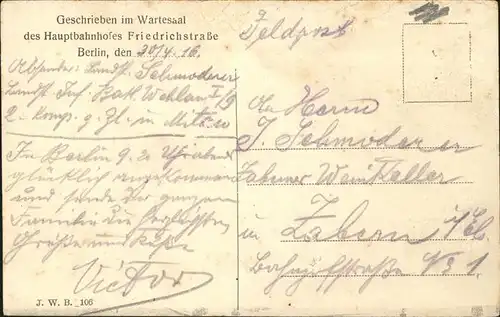 Geschrieben im Wartesaal
des Hauptbahnhofes Friedrichstraße
Berlin, den 30/4 16.
Absender: Landst. Schmoderer
Landst. Inf. Batl. Wehlau I/9
2. Komp. z. Zt. in Mitau
In Berlin 9.2 Uhr abends
glücklich angekommen
und sende der ganzen
Familie die herzlichsten
Grüße und Küsse
Victor
J. W. B. 106
Feldpost
An Herrn
J. Schmoderer
Zaberner Weinkeller
in Zabern i/Els.
Bahnhofstraße No 1.